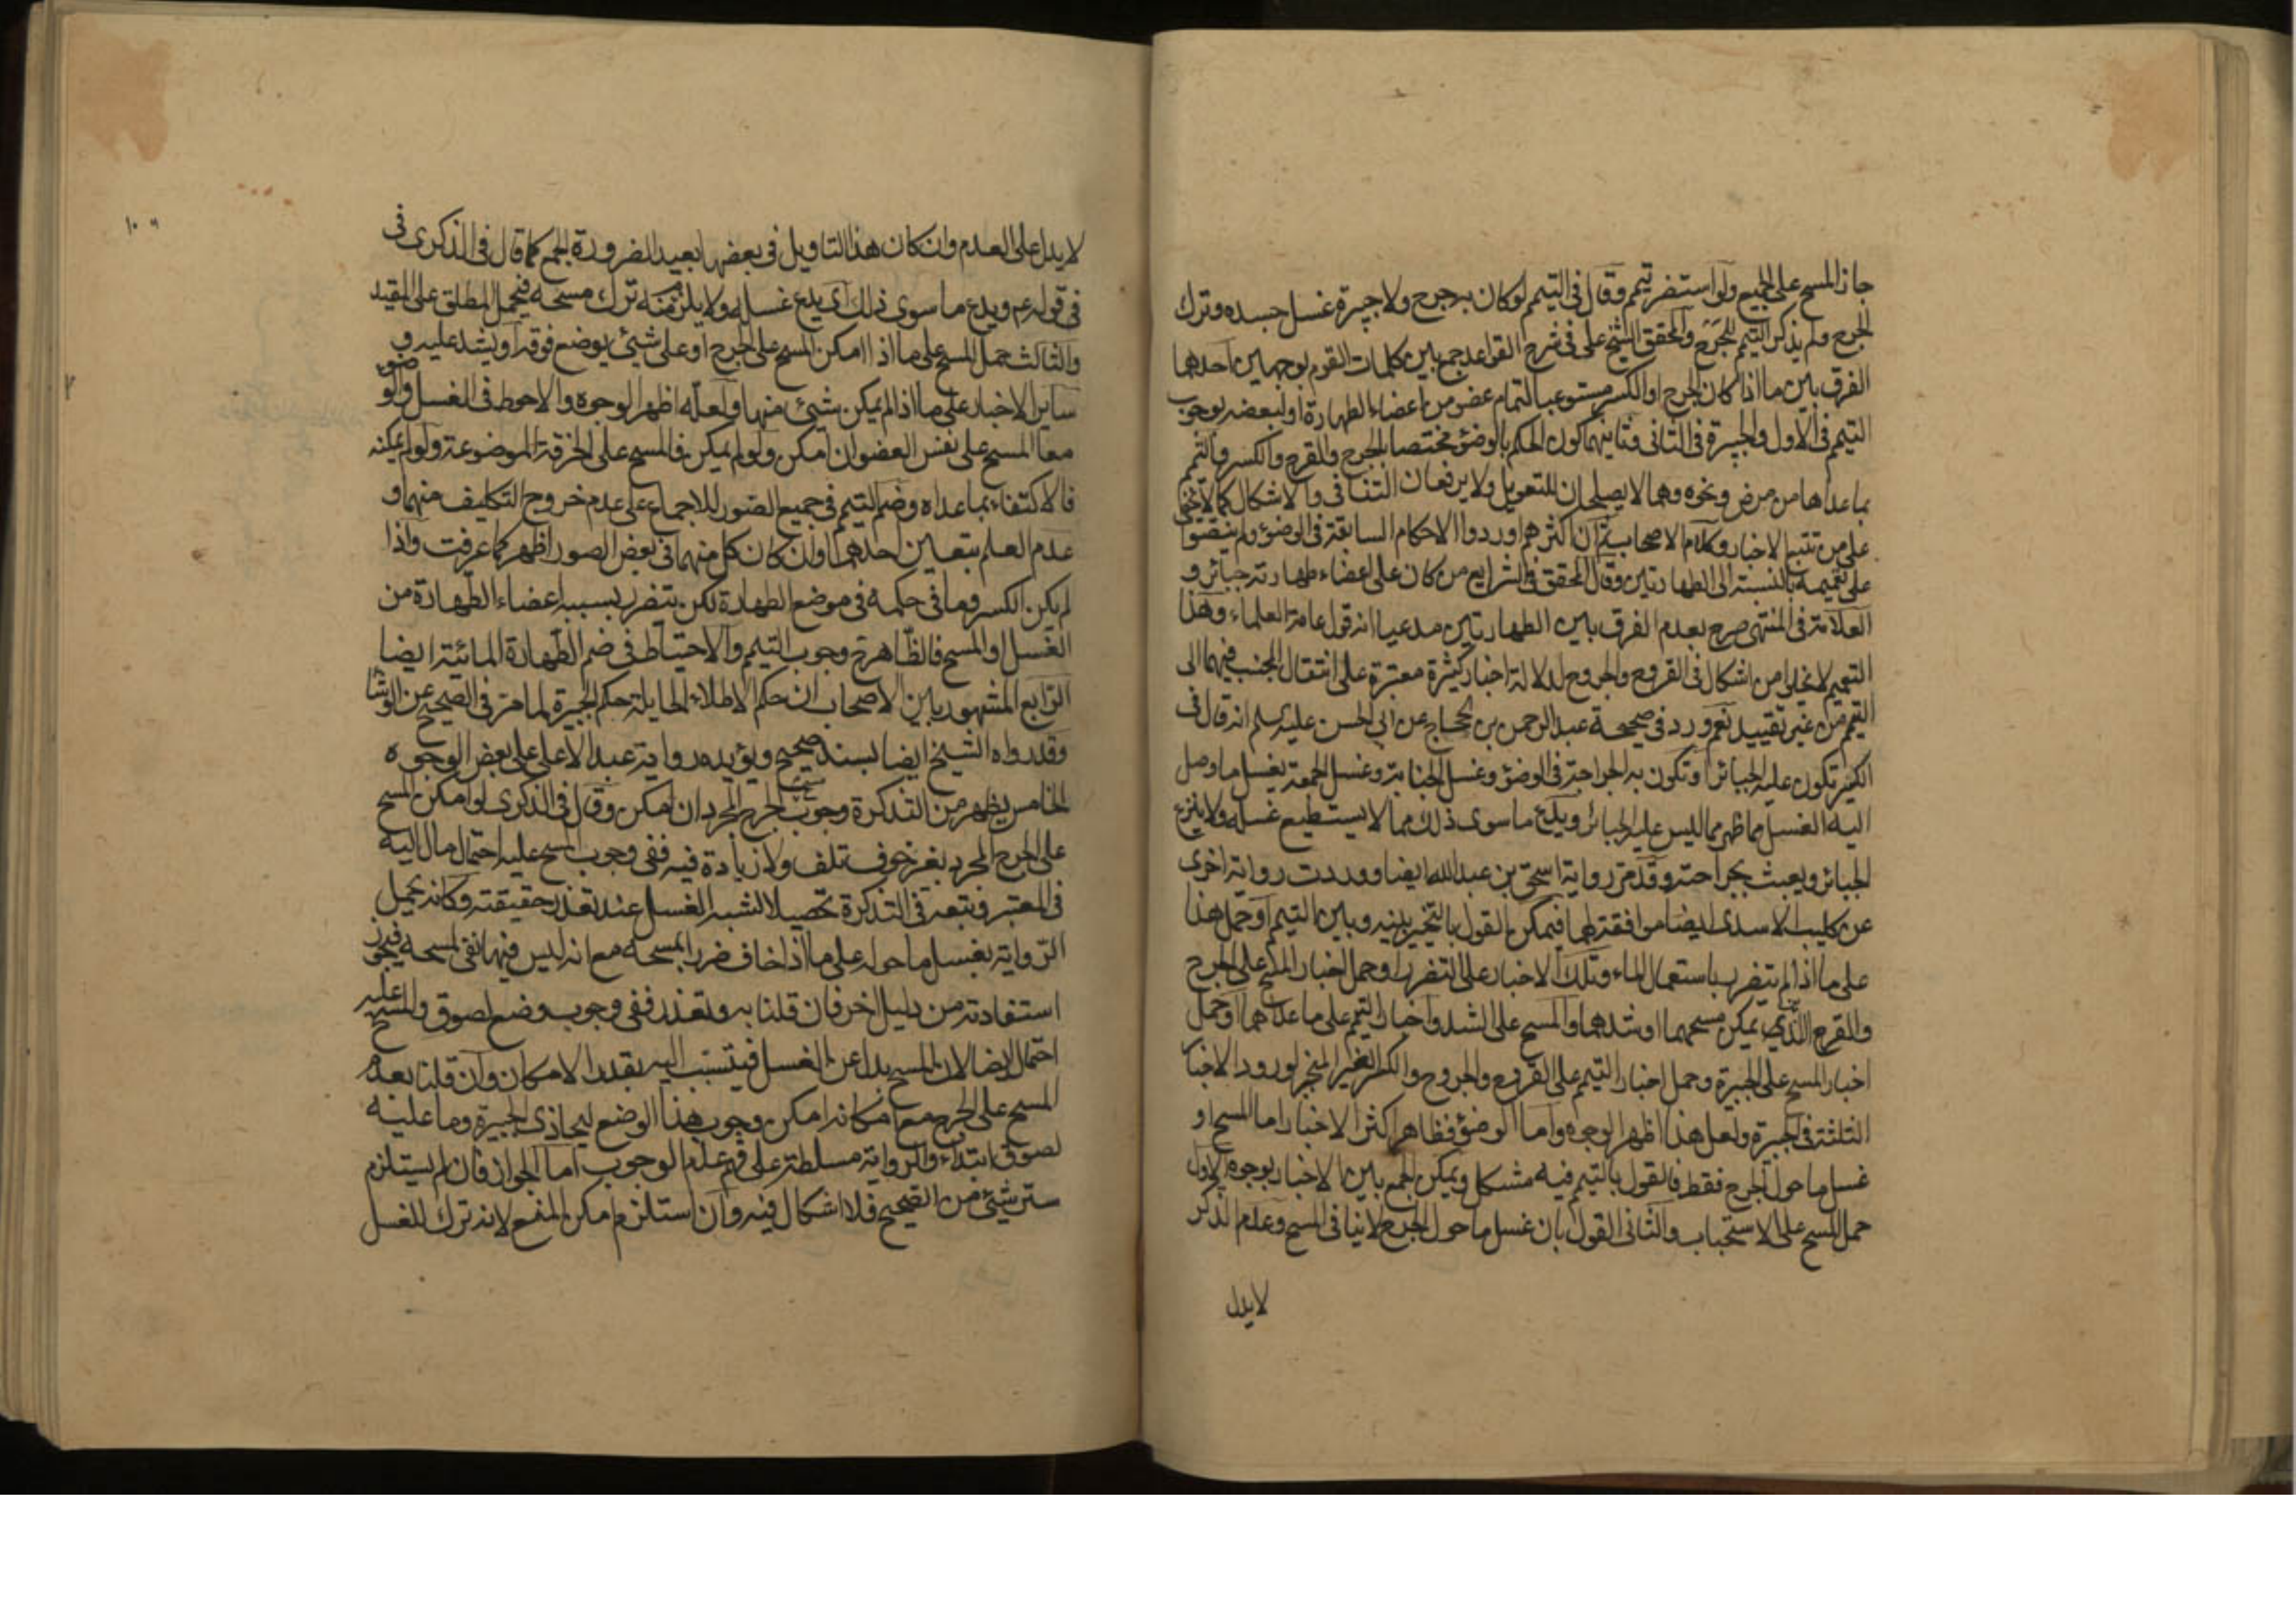 جاز المسح على الجميع ولو استضر تيمم وقال في التيمم لو كان به جرح ولا جبيرة غسل جسده وترك
الجرح ولم يذكر التيمم للجرح والمحقق الشيخ علي في شرح القواعد جمع بين كلمات القوم بوجهين احدهما
الفرق بين ما اذا كان الجرح او الكسر مستوعبا لتمام عضو من اعضاء الطهارة او لبعضه بوجوب
التيمم في الاول والجبيرة في الثاني وثانيهما كون الحكم بالوضؤ مختصا بالجرح والقرح والكسر والتيمم
بما عداها من مرض ونحوه وهما لا يصلحان للتعويل ولا يرفعان التنافي والاشكال كما لا يخفى
على من تتبع الاخبار وكلام الاصحاب ثم ان اكثرهم اوردوا الاحكام السابقة في الوضؤ ولم ينصّوا
على تعميمه بالنسبة الى الطهارتين وقال المحقق في الشرايع من كان على اعضاء طهارته جبائر و
العلامة في المنتهى صرح بعدم الفرق بين الطهارتين مدعيا انه قول عامة العلماء وهذا
التعميم لا يخلو من اشكال في القروح والجروح لدلالة اخبار كثيرة معتبرة على انتقال الجنب فيهما الى
التيمم من غير تقييد نعم ورد في صحيحة عبد الرحمن بن الحجاج عن ابي الحسن عليه السلم انه قال في
الكسير تكون عليه الجبائر او تكون به الجراحة في الوضؤ وغسل الجنابة وغسل الجمعة يغسل ما وصل
اليه الغسل مما ظهر مما ليس عليه الجبائر ويدع ما سوى ذلك مما لا يستطيع غسله ولا ينزع
الجبائر ويعبث بجراحته وقد مر رواية اسحق بن عبد الله ايضا ووردت رواية اخرى
عن كليب الاسدي ايضا موافقة لها فيمكن القول بالتخيير بينه وبين التيمم او حمل هذا
على ما اذا لم يتضرر باستعمال الماء وتلك الاخبار على التضرر او حمل اخبار المسح على الجرح
والقرح الذي يمكن مسحهما او شدهما والمسح على الشد واخبار التيمم على ما عداهما او حمل
اخبار المسح على الجبيرة وحمل اخبار التيمم على القروح والجروح والكسر الغير المنجبر لورود الاخبار
الثلثة في الجبيرة ولعل هذا اظهر الوجوه واما الوضؤ فظاهر اكثر الاخبار اما المسح او
غسل ما حول الجرح فقط فالقول بالتيمم فيه مشكل ويمكن الجمع بين الاخبار بوجوه الاول
حمل المسح على الاستحباب والثاني القول بان غسل ما حول الجرح لا ينافي المسح وعدم الذكر
لا يدل
١٠٩
لا يدل على العدم وان كان هذا التاويل في بعضها بعيدا لضرورة الجمع كما قال في الذكرى في
في قوله ع ويدع ما سوى ذلك اي يدع غسله ولا يلزم منه ترك مسحه فيحمل المطلق على المقيد
والثالث حمل المسح على ما اذا امكن المسح على الجرح او على شيئ يوضع فوقه او يشد عليه و
ساير الاخبار على ما اذا لم يمكن شيئ منها ولعله اظهر الوجوه والاحوط في الغسل والوضوء
معا المسح على نفس العضو ان امكن ولو لم يمكن فالمسح على الخرقة الموضوعة ولو لم يمكنه
فالاكتفاء بما عداه وضم التيمم في جميع الصور للاجماع على عدم خروج التكليف منهما و
عدم العلم بتعيين احدهما وان كان كل منهما في بعض الصور اظهر كما عرفت واذا
لم يكن الكسر وما في حكمه في موضع الطهارة لكن يتضرر بسببه اعضاء الطهارة من
الغسل والمسح فالظاهر وجوب التيمم والاحتياط في ضم الطهارة المائية ايضا
الرابع المشهور بين الاصحاب ان حكم الاطلاء الحايلة حكم الجبيرة لما مر في الصحيح عن الوشا
وقد رواه الشيخ ايضا بسند صحيح ويؤيده رواية عبد الاعلى على بعض الوجوه
الخامس يظهر من التذكرة وجوب مسح الجرح المجرد ان امكن وقال في الذكرى لو امكن المسح
على الجرح المجرد بغير خوف تلف ولا زيادة فيه ففي وجوب المسح عليه احتمال مال اليه
في المعتبر وتبعه في التذكرة تحصيلا لشبه الغسل عند تعذر حقيقته وكانه يحمل
الرواية بغسل ما حوله على ما اذا خاف ضررا بمسحه مع انه ليس فيها نفي لمسحه فيجوز
استفادته من دليل اخر فان قلنا به وتعذر ففي وجوب وضع لصوق والمسح عليه
احتمال ايضا لان المسح بدل عن الغسل فيتسبب اليه بقدر الامكان وان قلنا بعدم
المسح على الجرح مع امكانه امكن وجوب هذا الوضع ليحاذي الجبيرة وما عليه
لصوق ابتداء والرواية مسلطة على فهم عدم الوجوب اما الجواز فان لم يستلزم
ستر شيئ من الصحيح فلا اشكال فيه وان استلزم امكن المنع لانه ترك للغسل